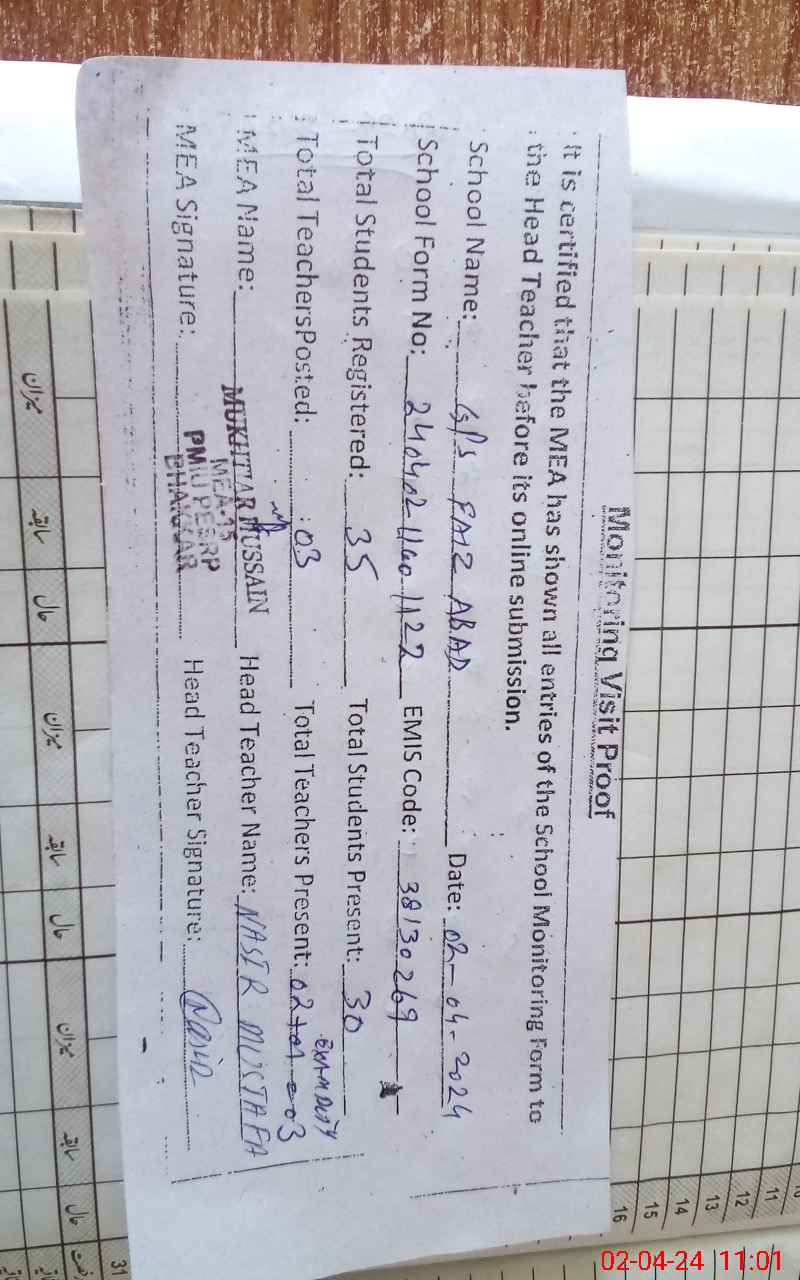 Monitoring Visit Proof
It is certified that the MEA has shown all entries of the School Monitoring Form to
the Head Teacher before its online submission.
School Name: GPS FAIZ ABAD Date: 02-04-2024
School Form No: EMIS Code: 38130269
Total Students Registered: 35 Total Students Present: 30
EXAM DUTY
Total TeachersPosted: 03 Total Teachers Present: 02+01=03
MEA Name: MUKHTIAR HUSSAIN Head Teacher Name: NASIR MUSTAFA
MEA-15
MEA Signature: PMIU PESRP Head Teacher Signature: Nasir
BHAKKAR
11
12
13
14
15
16
31
میزان سابقہ حال میزان سابقہ حال میزان سابقہ حال
02-04-24 11:01